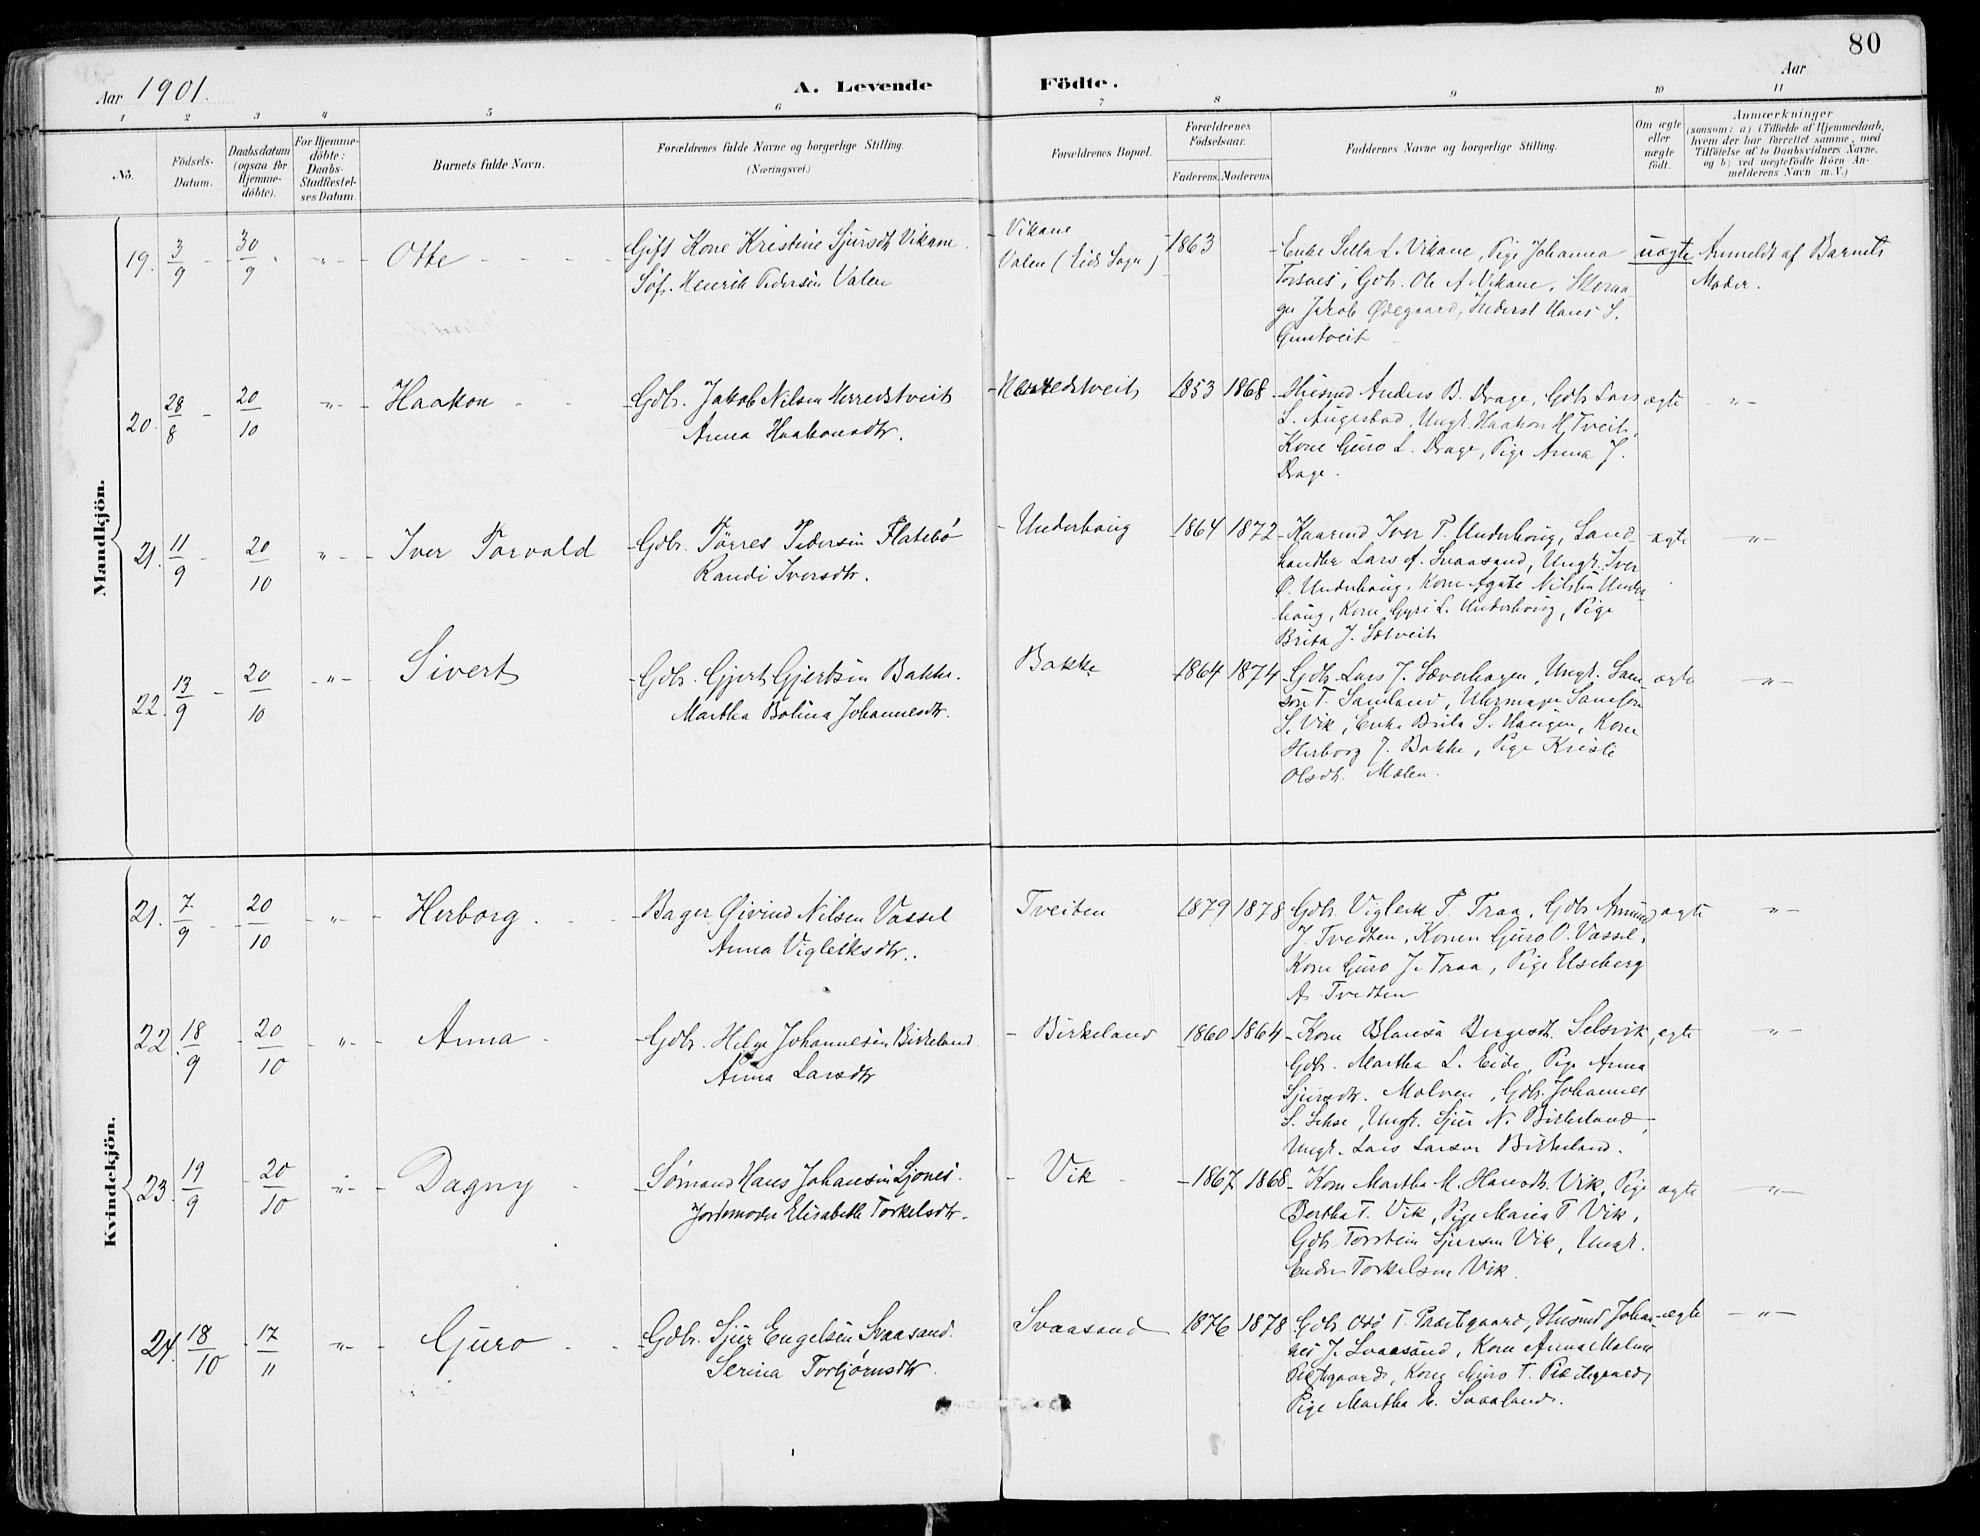 80
Aar 1901.
A. Levende Födte.
Aar
1 2 3 4 5 6 7 8 9 10 11
No.
Födsels-Datum.
Daabsdatum (ogsaa for Hjemmedöbte).
For Hjemmedöbte: Daabs-Stadfæstelses Datum.
Barnets fulde Navn.
Forældrenes fulde Navne og borgerlige Stilling.
(Næringsvei.)
Forældrenes Bopæl.
Forældrenes Födselsaar.
Faderens. Moderens.
Faddernes Navne og borgerlige Stilling.
Om ægte eller uægte födt.
Anmærkninger
(saasom: a) i Tilfælde af Hjemmedaab,
hvem der har forrettet samme, med
Tilföielse af to Daabsvidners Navne,
og b) ved uægtefödte Börn Anmelderens Navn m. V.)
Mandkjön.
19. 3/9 - 30/9 - " - Otte - Gift Kone Kristine Sjursdt Vikane. - Vikane 1863 - Enke Sella L. Vikane, Pige Johanna uægte Anmeldt af Barnets
Søfr. Henrik Pedersen Valen Valen (Eids Sogn) Torsnes, Gdb. Ole A. Vikane, Skoma Moder.
ger Jakob Ødegaard, Inderst Hans S.
Gustveit
20. 28/8 - 20/10 - " - Haakon - Gdbr. Jakob Nilsen Herredstveit - Herredstveit 1853 1868 - Husmd Anders B. Drage, Gdb. Lars ægte - " -
Anna Haakonsdtr. L. Augestad, Ungk. Haakon H. Tveit,
Kone Guro L. Drage, Pige Anna J.
Drage.
21. 11/9 - 20/10 " - Iver Torvald - Gdbr. Tørres Pedersen Flatebø - Underhaug 1864 1872 - Kaarmd Iver T. Underhaug, Land - ægte - " -
Randi Iversdtr. handler Lars A. Svaasand, Ungk. Iver
O. Underhaug, Kone Agate Nilsen Under
haug, Kone Gyri L. Underhaug, Pige
Brita J. Sætveit
22. 13/9 - 20/10 - " - Sivert - Gdbr. Gjert Gjertsen Bakke. Bakke 1864 1874 - Gdb. Lars J. Sæverhagen, Ungk. Sam ægte - " -
Martha Bolina Johannesdtr. son T. Samland, Uhrmager Samson
S. Vik, Enke Brita S. Haugen, Kone
Herborg J. Bakke, Pige Kristi
Olsdt. Mælen.
Kvindekjön.
21. 7/9 - 20/10 - " - Herborg. - Bager Øivind Nilsen Vassel Tveiten 1879 1878 Gdb. Vigleik T. Traa, Gdb. Amund ægte - " -
Anna Vigleiksdtr. J. Tvedten, Konen Guro O. Vassel,
Kone Guro J. Traa, Pige Elseberg
A. Tvedten
22. 18/9 - 20/10 - " - Anna - Gdbr. Helge Johannesen Birkeland - Birkeland 1860 1864 - Kone Blansa Bergesdt. Selsvik, ægte - " -
Anna Larsdtr Gdb. Martha L. Eide, Pige Anna
Sjursdtr. Molven, Gdb. Johannes
S. Sekse, Ungk. Sjur N. Birkeland,
Ungk. Lars Larsen Birkeland.
23. 19/9 - 20/10 - " - Dagny - Sømand Hans Johansen Ljones. - Vik - 1867 1868 - Kone Martha M. Hansdt. Vik, Pige ægte - " -
Jordmoder Elisabeth Torkelsdtr. Bertha T. Vik, Pige Maria T. Vik,
Gdb. Torstein Sjursen Vik, Ungk.
Endre Torkelsen Vik.
24. 18/10 - 17/11 - " - Guro - Gdbr. Sjur Engelsen Svaasand. Svaasand 1876 1878 Gdb. Odd T. Prestgaard, Husmd Johan ægte - " -
Serina Torbjørnsdtr. nes J. Svaasand, Kone Anna Malene
Prestgaard, Kone Guro T. Prestgaard,
Pige Martha E. Svaasand.